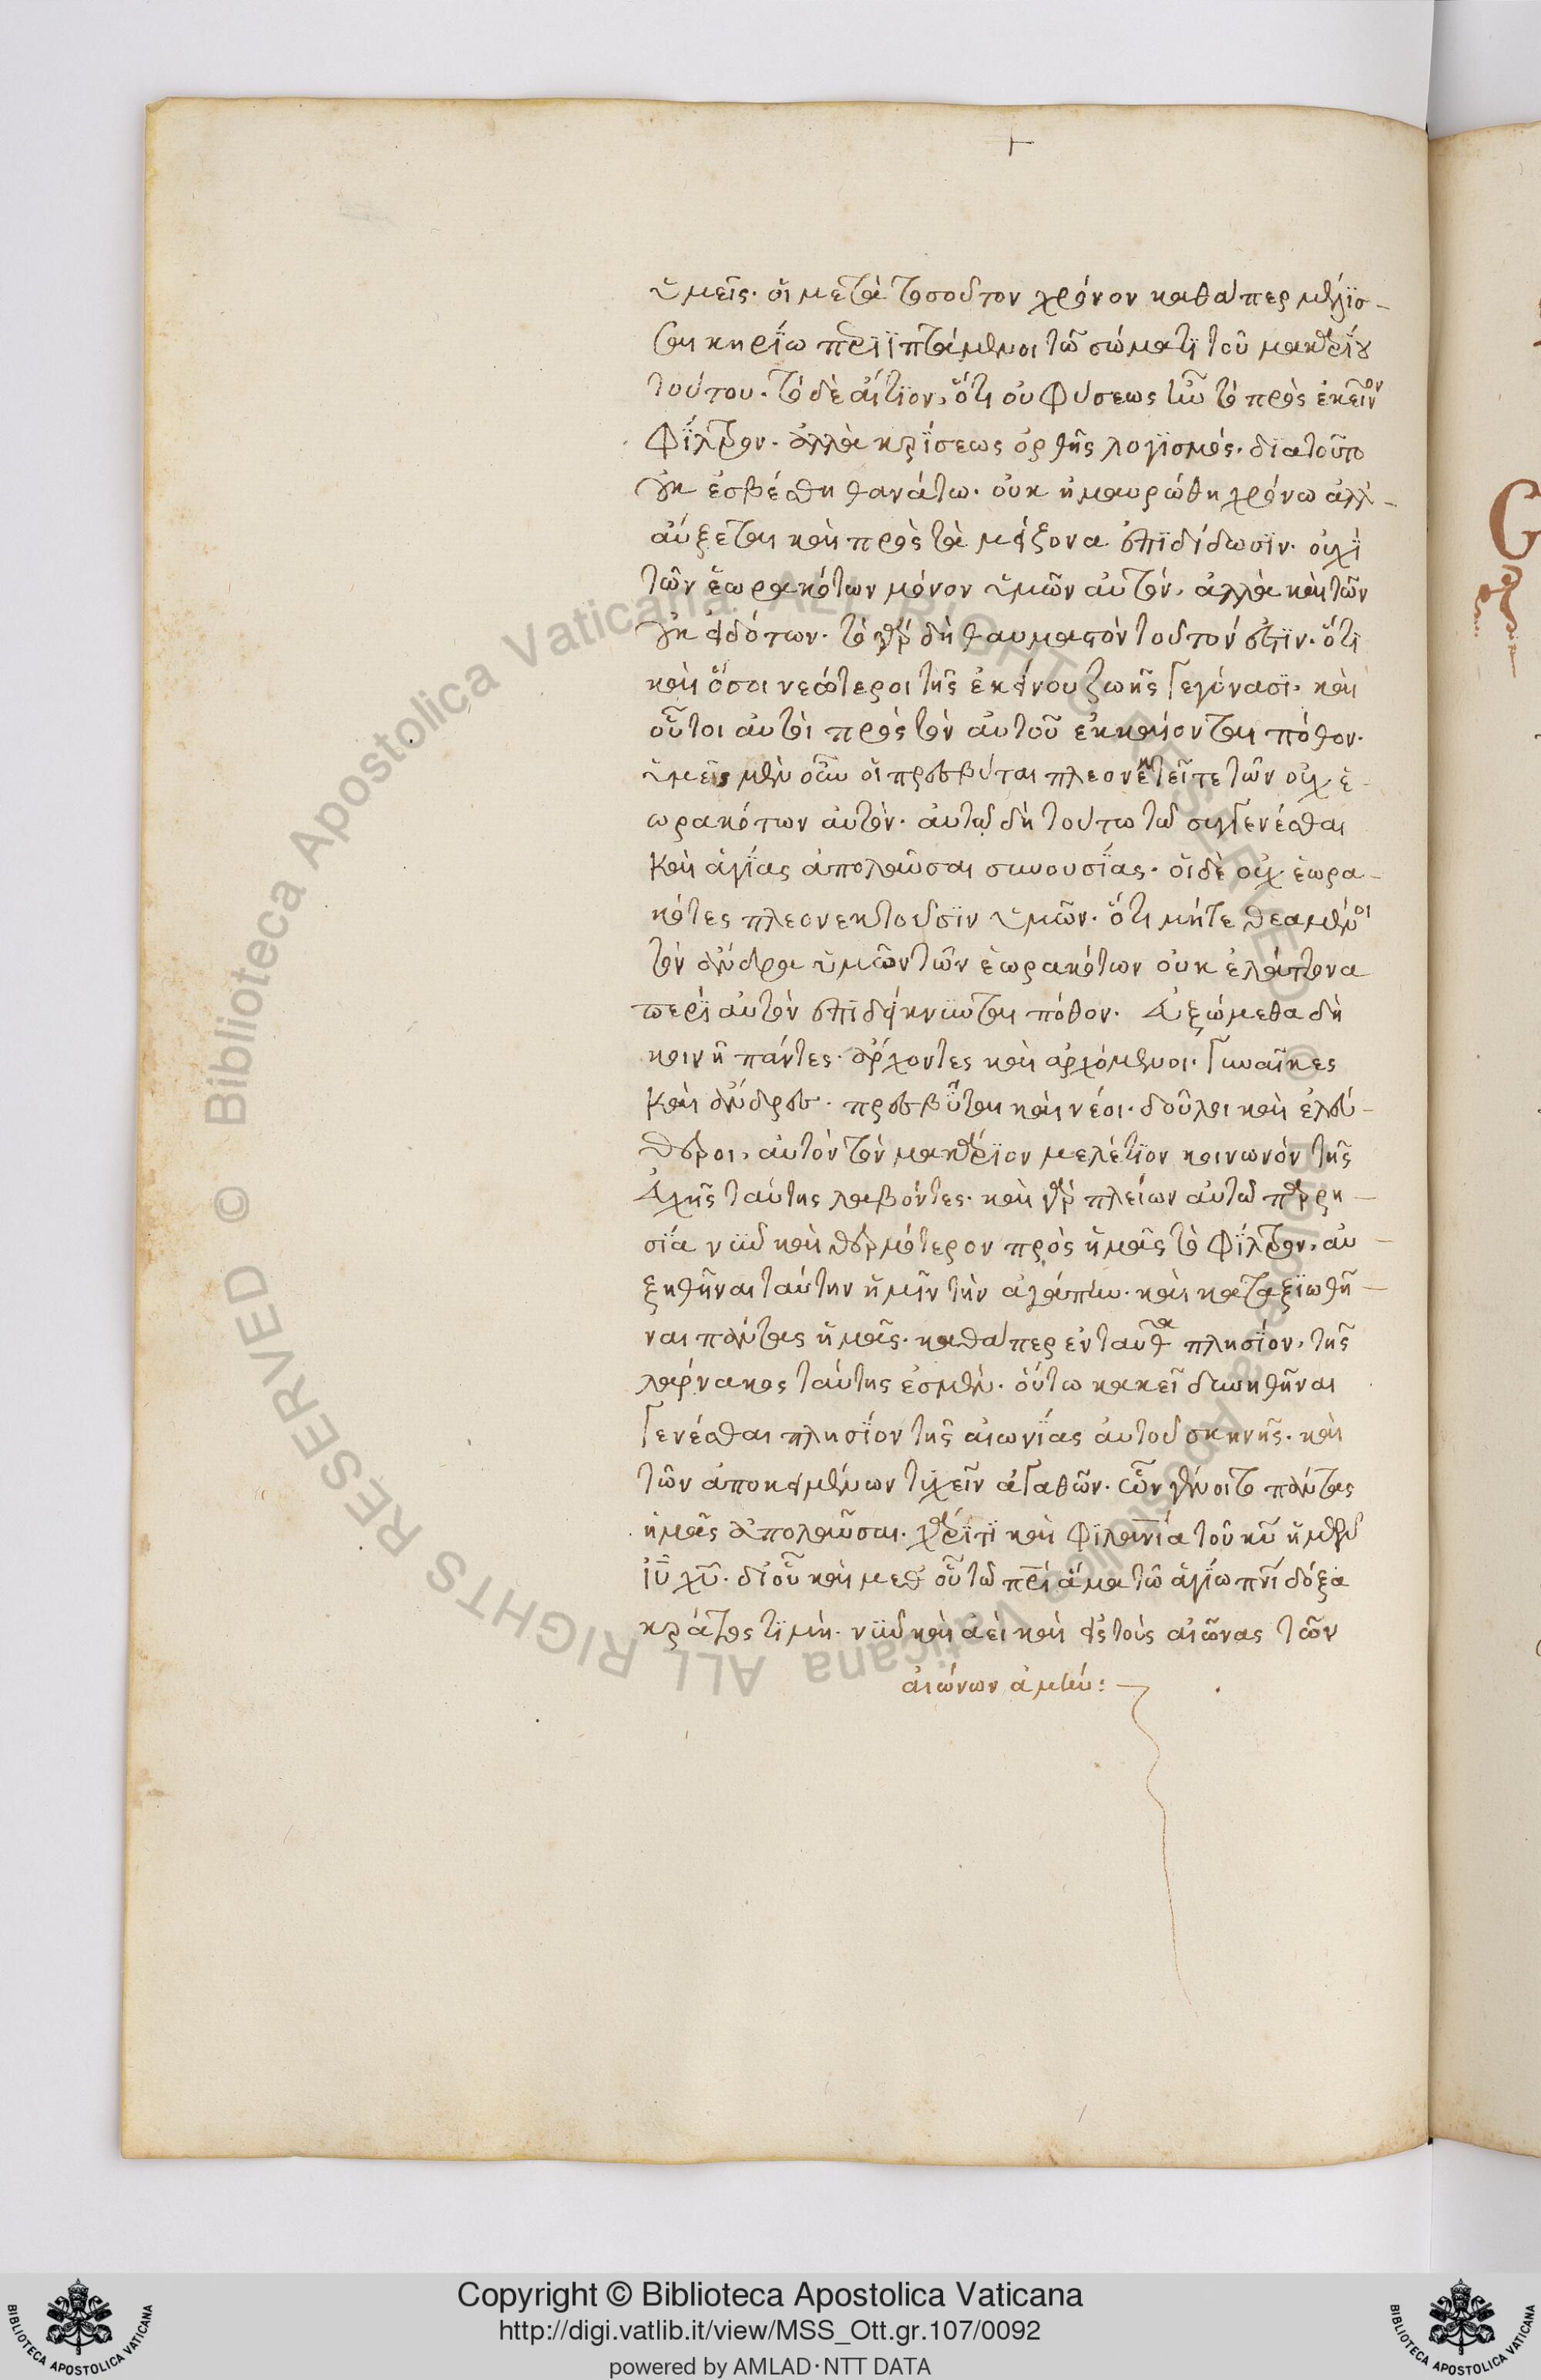 ὑμεῖς. οἱ μετὰ τοσοῦτον χρόνον καθάπερ μέλισ-
σαι κηρίω περιϊπτάμενοι τῶ σώματι τοῦ μακαρίου
τούτου. τὸ δὲ αἴτιον, ὅτι οὐ φύσεως ἦν τὸ πρὸς ἐκεῖνον
φίλτρον. ἀλλὰ κρίσεως ὀρθῆς λογισμός. διατοῦτο
οὐκ ἐσβέσθη θανάτω. οὐκ ἠμαυρώθη χρόνω ἀλλ-
αὔξεται καὶ πρὸς τὰ μείζονα ἐπιδίδωσιν. οὐχὶ
τῶν ἑωρακότων μόνον ὑμῶν αὐτόν, ἀλλὰ καὶ τῶν
οὐκ εἰδότων. τὸ γὰρ δὴ θαυμαστὸν τοῦτον ἐστιν. ὅτι
καὶ ὅσοι νεώτεροι τῆς ἐκείνου ζωῆς γεγόνασι. καὶ
οὗτοι αὐτοὶ πρὸς τὸν αὐτοῦ ἐκκαίονται πόθον.
ὑμεῖς μὲν οὖν οἱ πρεσβύται πλεονεκτεῖτε τῶν οὐχ ἑ-
ωρακότων αὐτόν. αὐτῶ δὴ τούτω τῶ συγγενέσθαι
καὶ ἁγίας ἀπολαῦσαι συνουσίας. οἱ δὲ οὐχ ἑωρα-
κότες πλεονεκτοῦσιν ὑμῶν. ὅτι μήτε θεαμένοι
τὸν ἄνδρα ὑμῶν τῶν ἑωρακότων οὐκ ἐλάττονα
περὶ αὐτὸν ἐπιδείκνυνται πόθον. εὐξώμεθα δὴ
κοινῆ πάντες. ἄρχοντες καὶ ἀρχόμενοι. γυναῖκες
καὶ ἄνδρες. πρεσβῦται καὶ νέοι. δοῦλοι καὶ ἐλεύ-
θεροι, αὐτὸν τὸν μακάριον μελέτιον κοινωνὸν τῆς
εὐχῆς ταύτης λαβόντες. καὶ γὰρ πλείων αὐτῶ παρρη-
σία νῦν καὶ θερμότερον πρὸς ἡμᾶς τὸ φίλτρον, αὐ-
ξηθῆναι ταύτην ἡμῖν τὴν ἀγάπην. καὶ καταξιωθῆ-
ναι πάντας ἡμᾶς. καθάπερ ἐνταῦθα πλησίον, τῆς
λάρνακος ταύτης ἐσμέν. οὕτω κακεῖ δυνηθῆναι
γενέσθαι πλησίον τῆς αἰωνίας αὐτοῦ σκηνῆς. καὶ
τῶν ἀποκειμένων τυχεῖν ἀγαθῶν. ὧν γένοιτο πάντας
ἡμᾶς ἀπολαῦσαι. χάριτι καὶ φιλανια τοῦ κυ ἡμῶν
ιυ χυ. δι οὗ καὶ μεθ οὗ τῶ πρι ἅμα τῶ ἁγίω πνι δόξα
κράτος τιμὴ. νῦν καὶ ἀεὶ καὶ εἰς τοὺς αἰῶνας τῶν
αἰώνων ἀμήν:
Copyright © Biblioteca Apostolica Vaticana
http://digi.vatlib.it/view/MSS_Ott.gr.107/0092
powered by AMLAD·NTT DATA